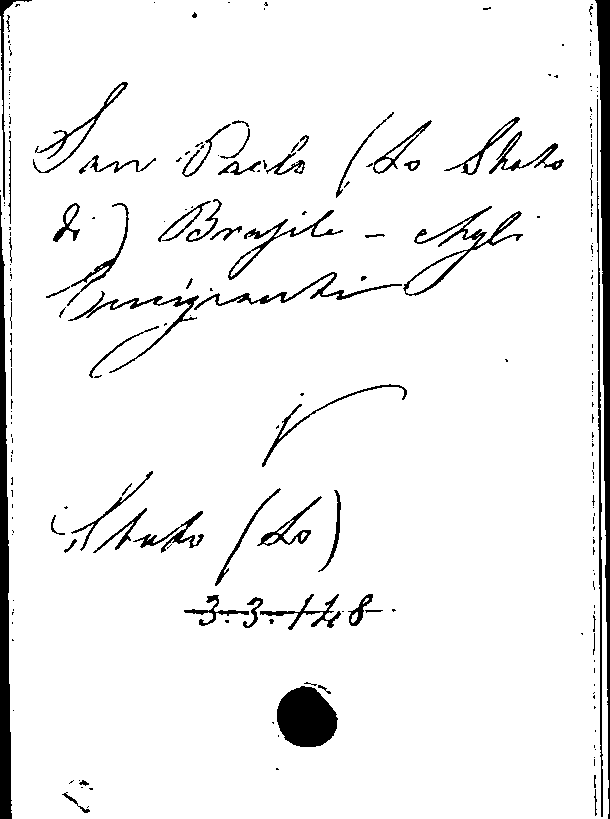 San Paolo (Lo Stato
di) Brasile - Agli
Emigranti
V
Stato (Lo)
3.3.148